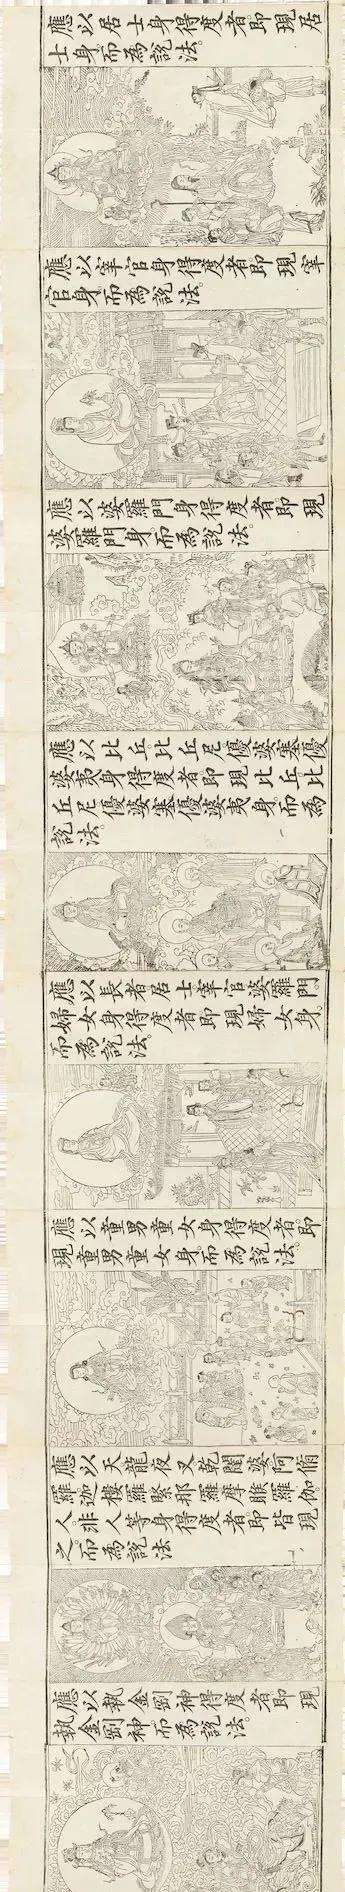 應以居士身得度者即現居
士身而為說法。
應以宰官身得度者即現宰
官身而為說法。
應以婆羅門身得度者即現
婆羅門身而為說法。
應以比丘比丘尼優婆塞優
婆夷身得度者即現比丘比
丘尼優婆塞優婆夷身而為
說法。
應以長者居士宰官婆羅門
婦女身得度者即現婦女身
而為說法。
應以童男童女身得度者即
現童男童女身而為說法。
應以天龍夜叉乾闥婆阿脩
羅迦樓羅緊那羅摩睺羅伽
人非人等身得度者即皆現
之而為說法
應以執金剛神得度者即現
執金剛神而為說法。